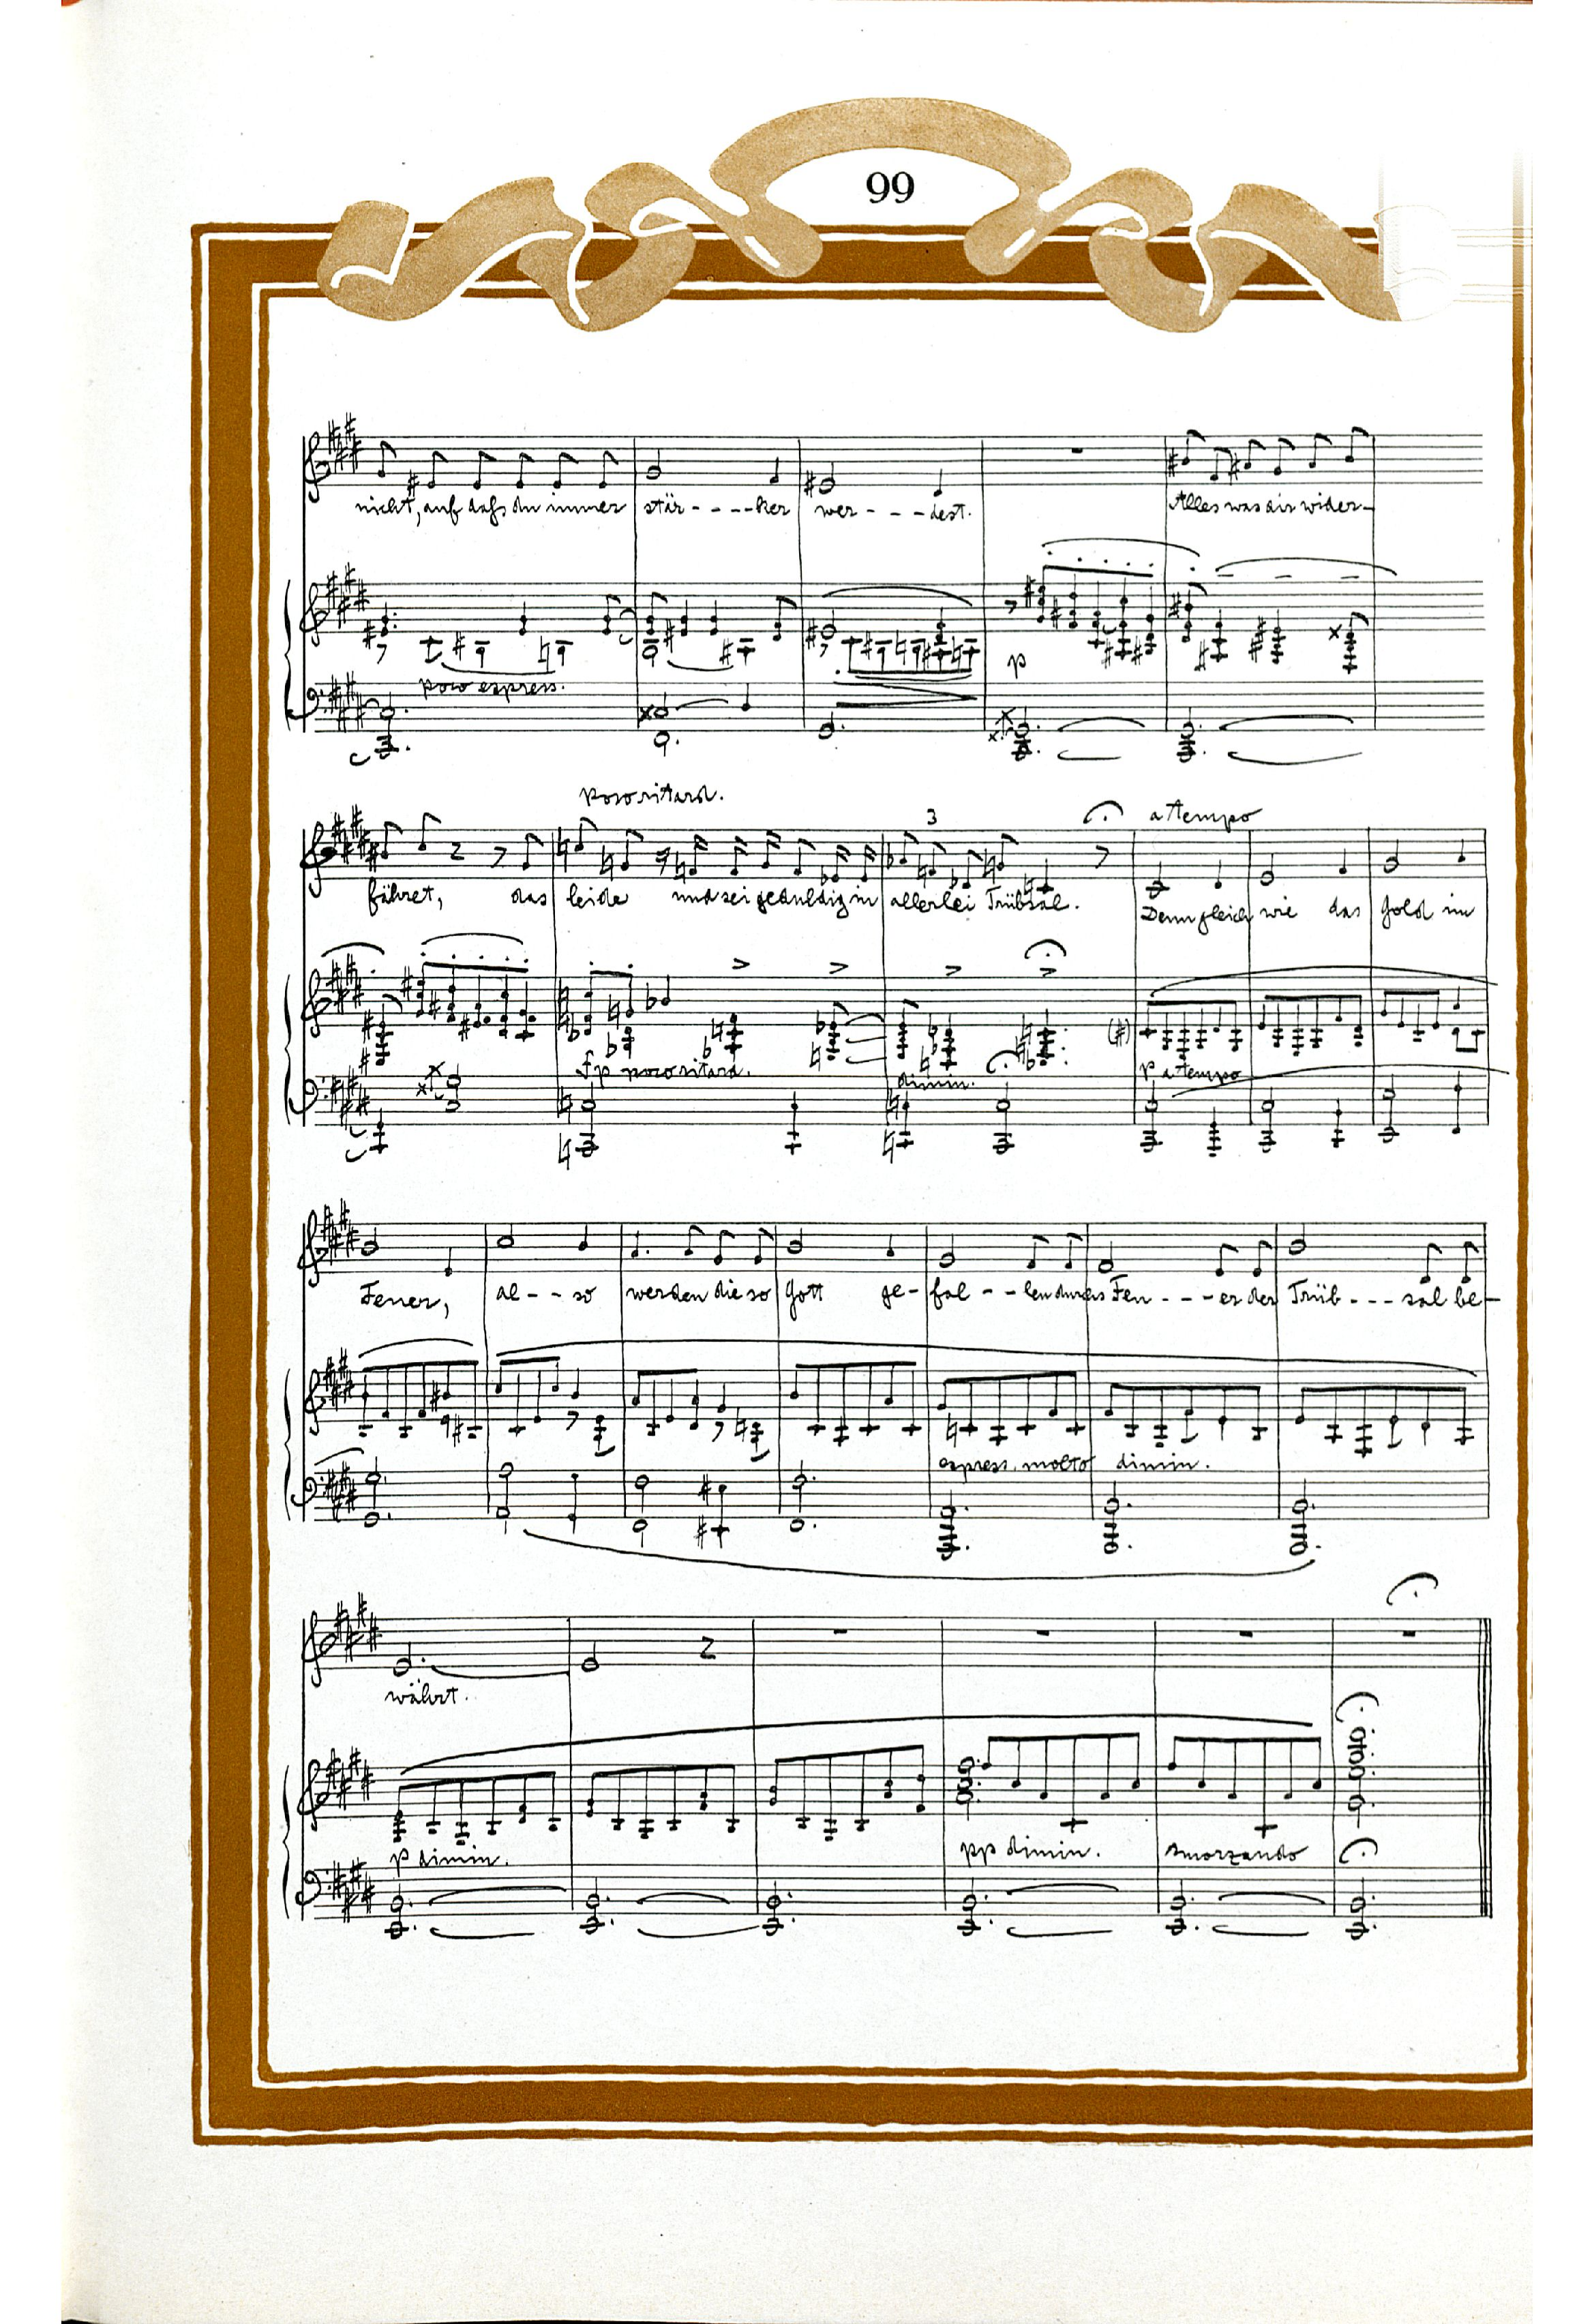 99
nicht, auf dafs du immer stär----ker wer----dest. Alles was dir wider-
poco express.
p
poco ritard. a tempo
3
fähret, das leide und sei geduldig in allerlei Trübsal. Denn gleich wie das Gold im
fp poco ritard. dimin. p a tempo
Feuer, al--so werden die so Gott ge-fal--len durchs Feu----er der Trüb----sal be-
express. molto dimin.
währt.
p dimin. pp dimin. smorzando